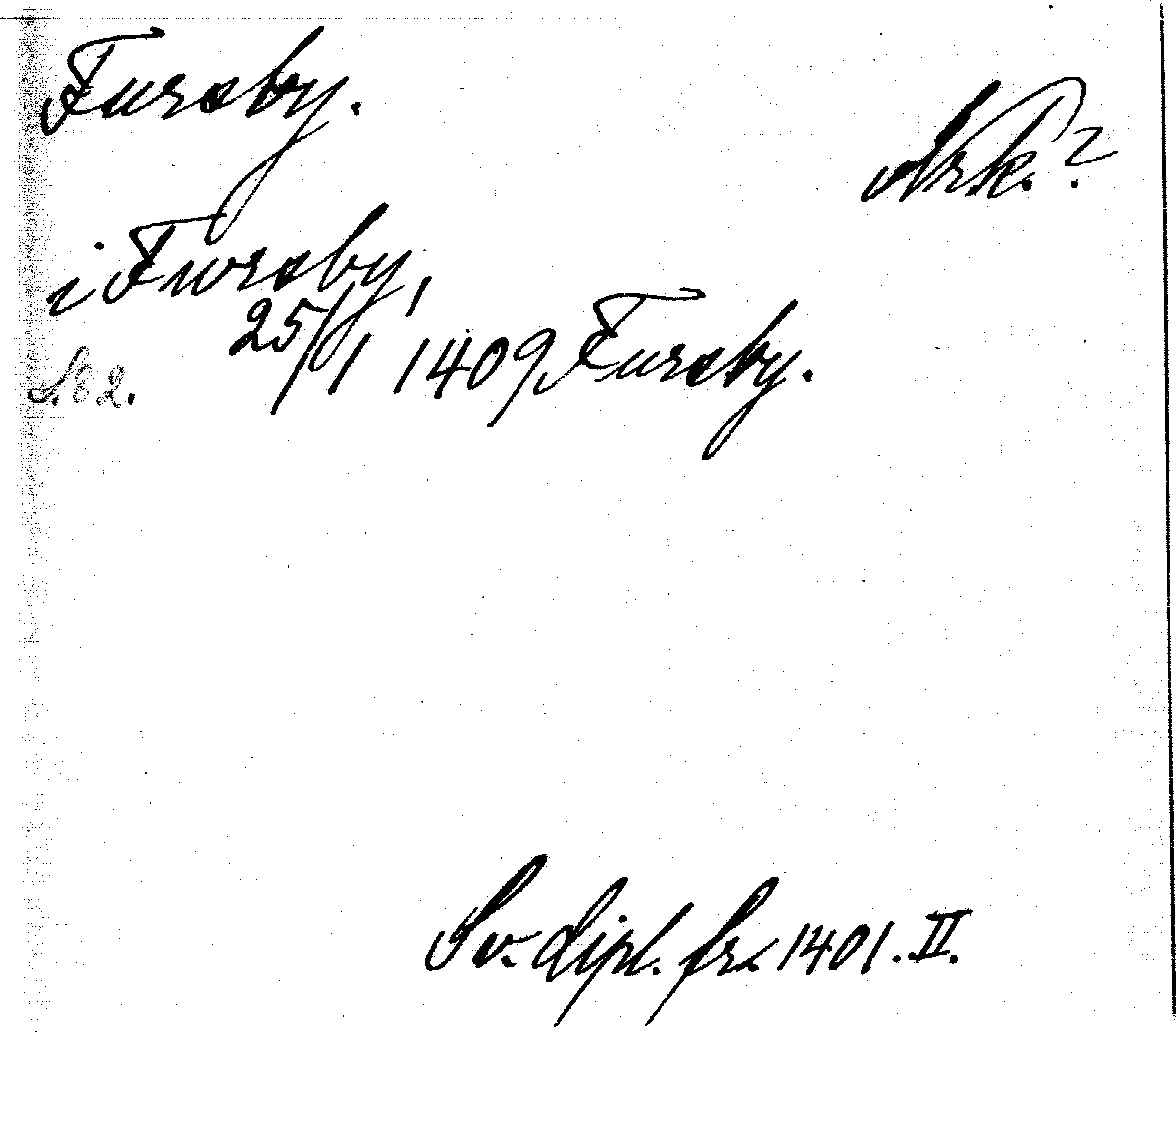 Furaby.
Nrk.?
i Furaby,
25/1 1409 Furaby.
S. 82.
Sv. dipl. fr. 1401. II.